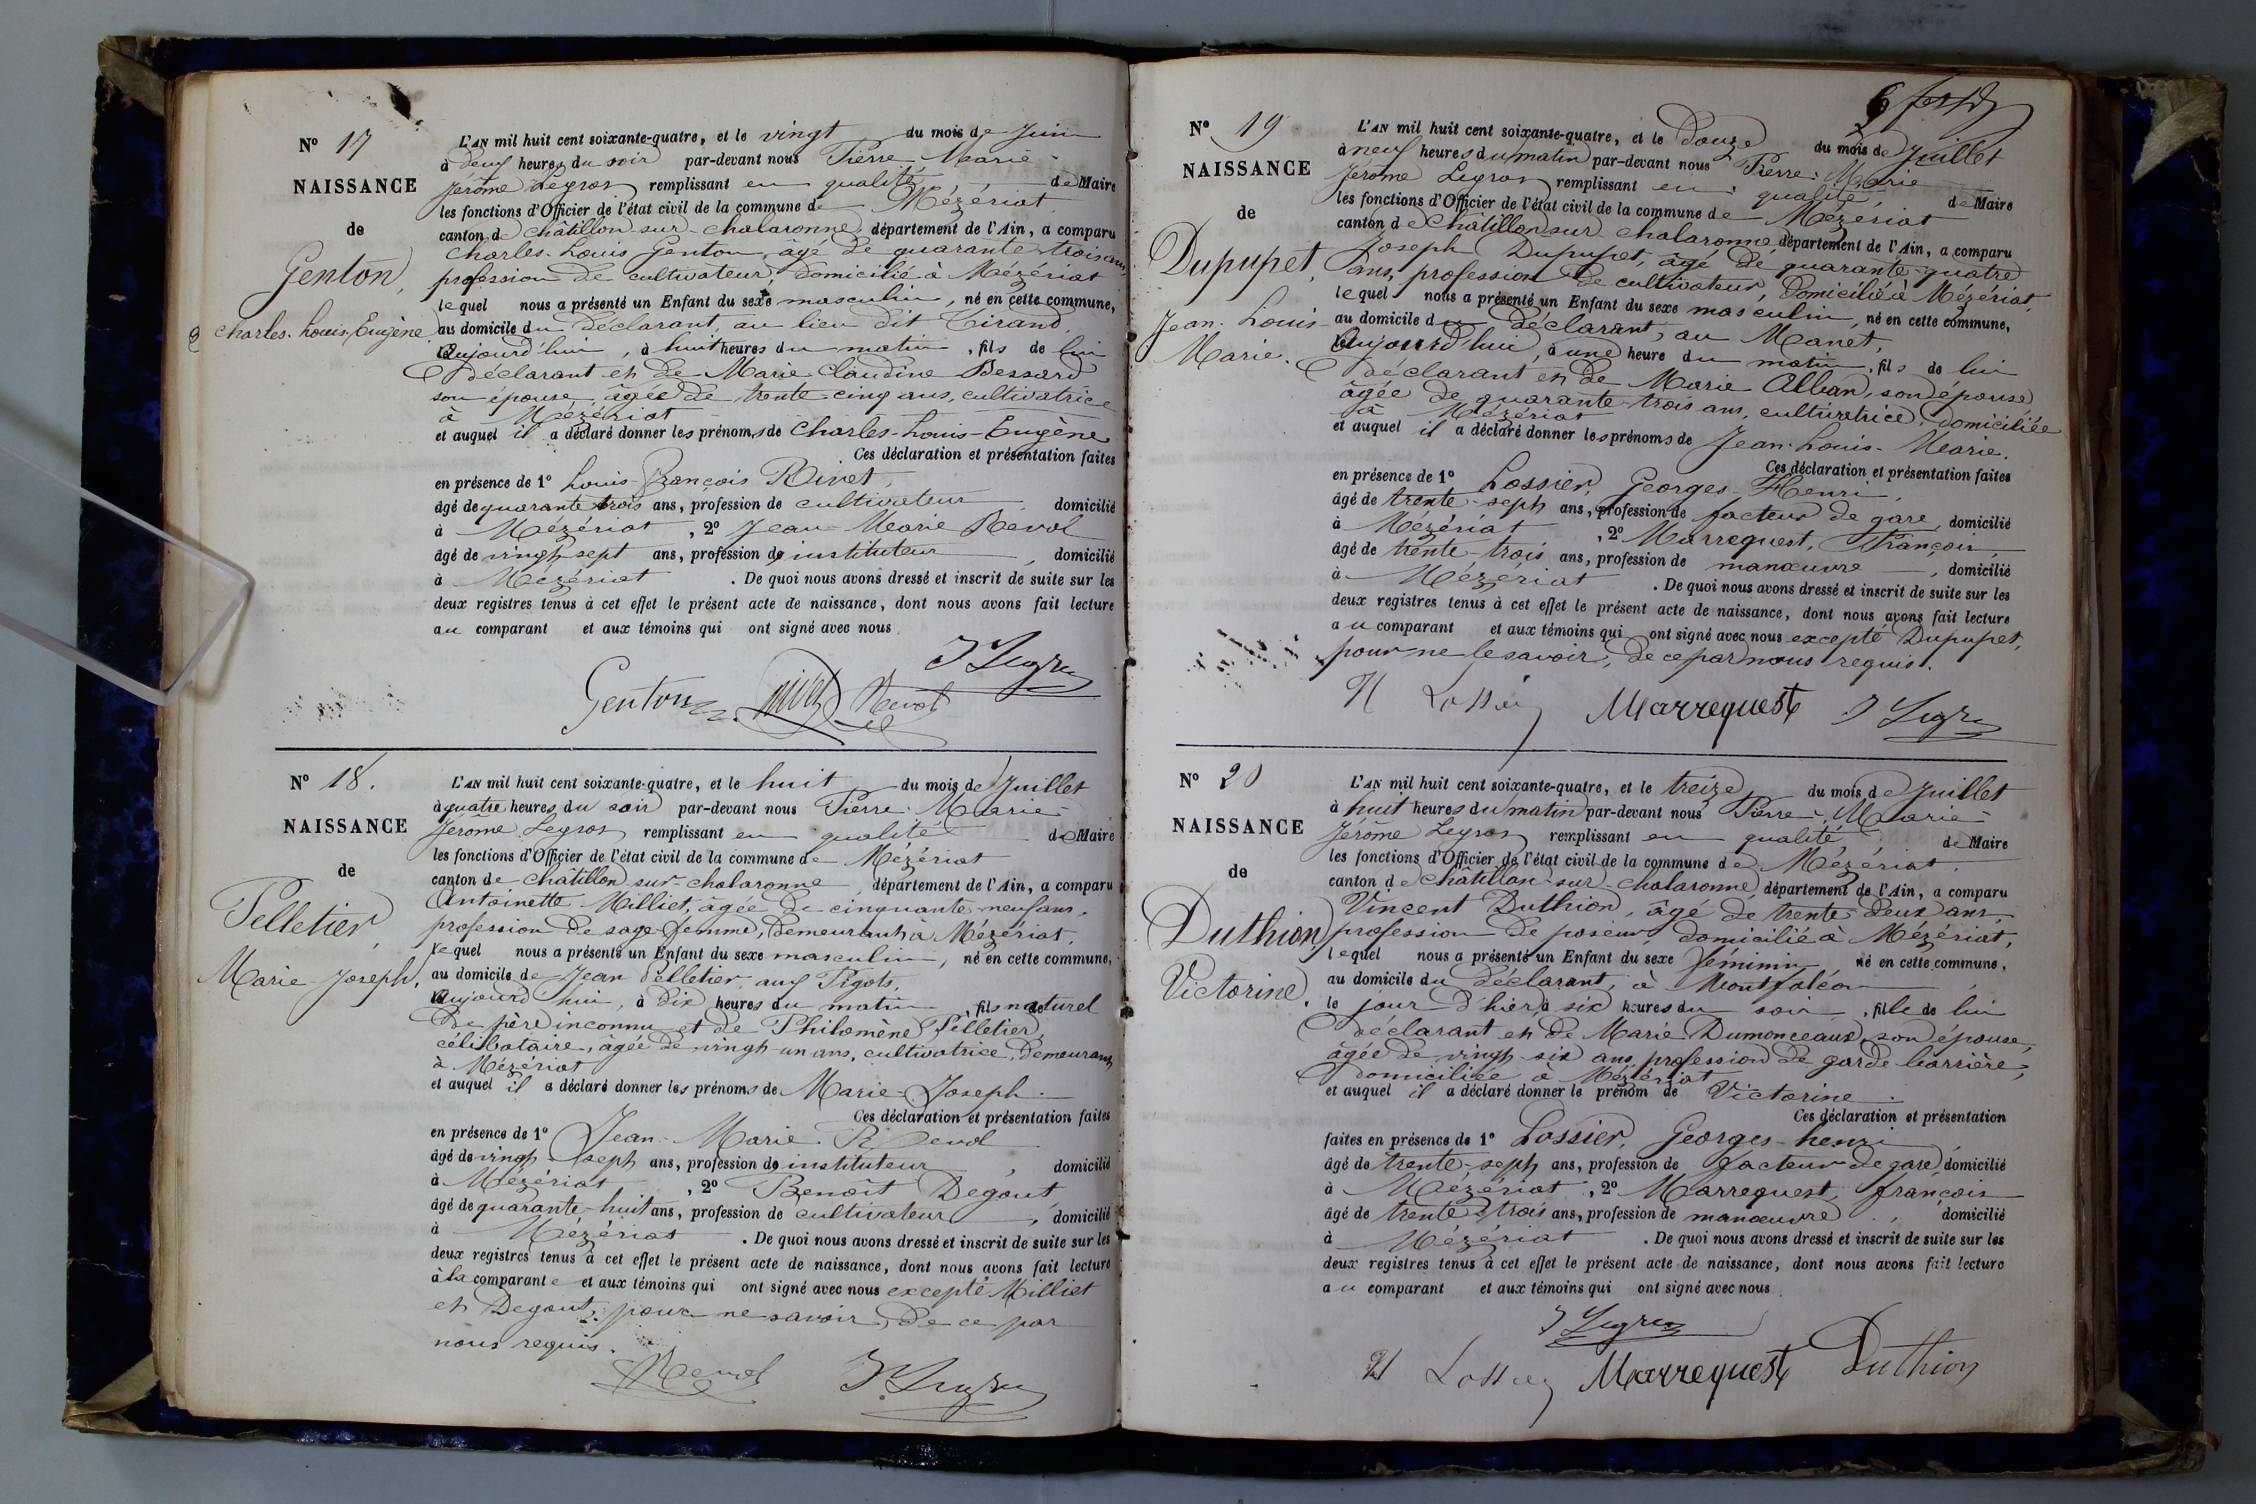 N° 17
NAISSANCE
de
Genton,
Charles-Louis-Eugène
L'AN mil huit cent soixante-quatre, et le vingt du mois de Juin
à deux heures du soir par-devant nous Pierre Marie
Jérôme Legros remplissant en qualité de Maire
les fonctions d'Officier de l'état civil de la commune de Mézériat
canton de Châtillon-sur-Chalaronne, département de l'Ain, a comparu
Charles-Louis Genton, âgé de quarante-trois ans,
profession de cultivateur, domicilié à Mézériat
lequel nous a présenté un Enfant du sexe masculin, né en cette commune,
au domicile du déclarant, au lieu dit Tirand,
aujourd'hui, à huit heures du matin, fils de lui
déclarant et de Marie Claudine Bessard
son épouse, âgée de trente-cinq ans, cultivatrice
à Mézériat
et auquel il a déclaré donner les prénoms de Charles-Louis-Eugène
Ces déclaration et présentation faites
en présence de 1° Louis-François Rivet,
âgé de quarante trois ans, profession de cultivateur domicilié
à Mézériat, 2° Jean-Marie Revol
âgé de vingt-sept ans, profession de instituteur, domicilié
à Mézériat. De quoi nous avons dressé et inscrit de suite sur les
deux registres tenus à cet effet le présent acte de naissance, dont nous avons fait lecture
au comparant et aux témoins qui ont signé avec nous
J Legros
Genton Rivet Revol
N° 18.
NAISSANCE
de
Pelletier,
Marie-Joseph.
L'AN mil huit cent soixante-quatre, et le huit du mois de Juillet
à quatre heures du soir par-devant nous Pierre-Marie-
Jérôme Legros remplissant en qualité de Maire
les fonctions d'Officier de l'état civil de la commune de Mézériat
canton de Châtillon-sur-Chalaronne, département de l'Ain, a comparu
Antoinette Milliet, âgée de cinquante-neuf ans,
profession de sage-femme, demeurant à Mézériat,
lequel nous a présenté un Enfant du sexe masculin, né en cette commune,
au domicile de Jean Pelletier, aux Pigots,
aujourd'hui, à dix heures du matin, fils naturel de
de père inconnu et de Philomène Pelletier,
célibataire, âgée de vingt-un ans, cultivatrice, demeurant
à Mézériat
et auquel il a déclaré donner les prénoms de Marie-Joseph.
Ces déclaration et présentation faites
en présence de 1° Jean-Marie Revol
âgé de vingt-sept ans, profession de instituteur, domicilié
à Mézériat, 2° Benoît Degout,
âgé de quarante-huit ans, profession de cultivateur, domicilié
à Mézériat. De quoi nous avons dressé et inscrit de suite sur les
deux registres tenus à cet effet le présent acte de naissance, dont nous avons fait lecture
à la comparante et aux témoins qui ont signé avec nous excepté Milliet
et Degout, pour ne savoir, de ce par
nous requis.
Revol J. Legros
N° 19
NAISSANCE
de
Dupupet,
Jean-Louis-
Marie.
L'AN mil huit cent soixante-quatre, et le douze du mois de Juillet
à neuf heures du matin par-devant nous Pierre-Marie
Jérôme Legros remplissant en qualité de Maire
les fonctions d'Officier de l'état civil de la commune de Mézériat
canton de Châtillon-sur-Chalaronne département de l'Ain, a comparu
Joseph Dupupet, âgé de quarante-quatre
ans, profession de cultivateur, domicilié à Mézériat,
lequel nous a présenté un Enfant du sexe masculin, né en cette commune,
au domicile du déclarant, au Manet,
aujourd'hui, à une heure du matin, fils de lui
déclarant et de Marie Alban, son épouse
âgée de quarante-trois ans, cultivatrice, domiciliée
à Mézériat
et auquel il a déclaré donner les prénoms de Jean-Louis-Marie.
Ces déclaration et présentation faites
en présence de 1° Lossier, Georges-Henri,
âgé de trente-sept ans, profession de facteur de gare, domicilié
à Mézériat, 2° Marrequest, François,
âgé de trente-trois ans, profession de manœuvre, domicilié
à Mézériat. De quoi nous avons dressé et inscrit de suite sur les
deux registres tenus à cet effet le présent acte de naissance, dont nous avons fait lecture
au comparant et aux témoins qui ont signé avec nous excepté Dupupet,
pour ne le savoir, de ce par nous requis.
H Lossier Marrequest J Legros
N° 20
NAISSANCE
de
Duthion
Victorine.
L'AN mil huit cent soixante-quatre, et le treize du mois de Juillet
à huit heures du matin par-devant nous Pierre-Marie-
Jérôme Legros remplissant en qualité de Maire
les fonctions d'Officier de l'état civil de la commune de Mézériat
canton de Châtillon-sur-Chalaronne département de l'Ain, a comparu
Vincent Duthion, âgé de trente deux ans,
profession de poseur, domicilié à Mézériat,
lequel nous a présenté un Enfant du sexe féminin né en cette commune,
au domicile du déclarant, à Montfalcon,
le jour d'hier à six heures du soir, fille de lui
déclarant et de Marie Dumonceaux, son épouse,
âgée de vingt-six ans, profession de garde barrière,
domiciliée à Mézériat
et auquel il a déclaré donner le prénom de Victorine.
Ces déclaration et présentation
faites en présence de 1° Lossier, Georges-henri
âgé de trente-sept ans, profession de facteur de gare, domicilié
à Mézériat, 2° Marrequest, françois
âgé de trente-trois ans, profession de manœuvre, domicilié
à Mézériat. De quoi nous avons dressé et inscrit de suite sur les
deux registres tenus à cet effet le présent acte de naissance, dont nous avons fait lecture
au comparant et aux témoins qui ont signé avec nous
J Legros
H Lossier Marrequest Duthion